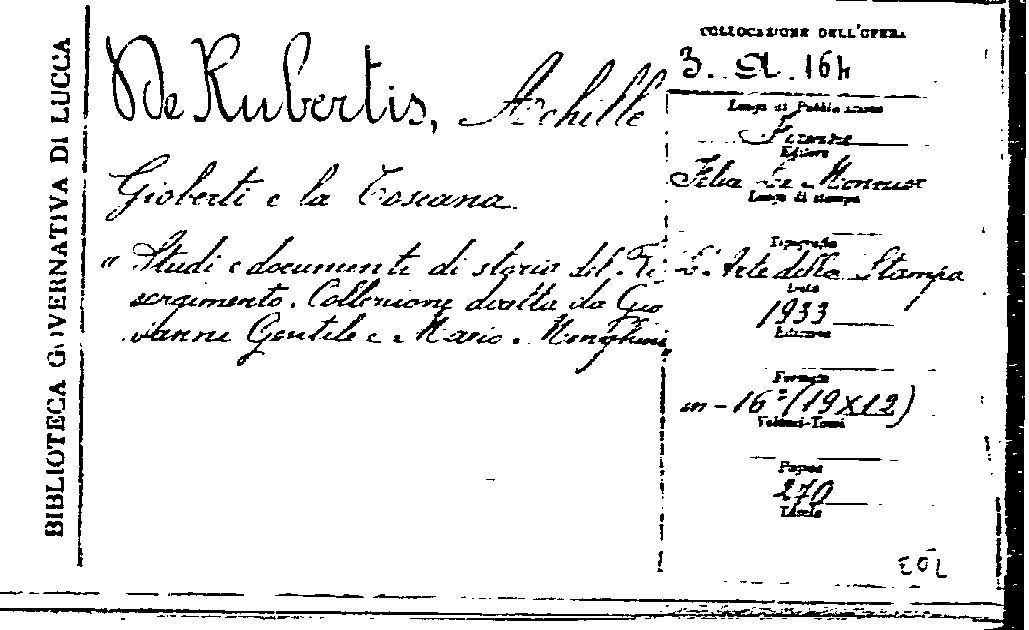 BIBLIOTECA GOVERNATIVA DI LUCCA
De Rubertis, Achille
Gioberti e la Toscana
" Studi e documenti di storia del Ri
sorgimento. Collezione diretta da Gio
vanni Gentile e Mario Menghini "
COLLOCAZIONE DELL'OPERA
3. A. 164
Luogo di Pubblicazione
Firenze
Editore
Felice Le Monnier
Luogo di stampa
Tipografia
L'Arte della Stampa
Data
1933
Edizione
Formato
in-16° (19x12)
Volumi-Tomi
Pagine
270
Tavole